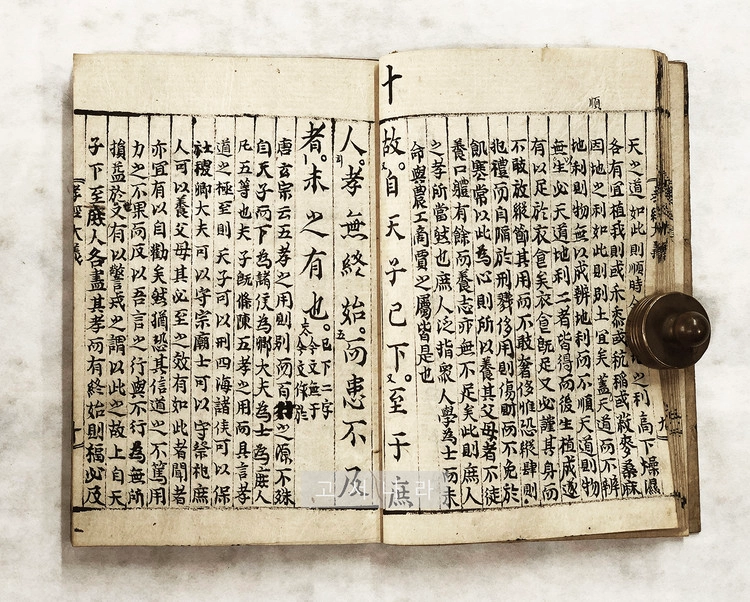 順
天之道如此則順時令之利高下燥濕
各有宜植我則或禾黍或秔稻或菽麥桑麻
因地之利如此則別土宜矣蓋天道而不辨
地利則物無以成辨地利而不順天道則物
無以生必天道地利二者皆得而後生植成遂
有以足於衣食矣衣食旣足又必謹其身而
不敢放縱節其用而不敢奢侈惟恐縱肆則
犯禮而自陷於刑戮侈用則傷財而不免於
飢寒常以此為心則所以養其父母者不徒
養口體有餘而養志亦無不足矣此庶人
之孝所當然也庶人泛指衆人學為士而未
命與農工商賈之屬皆是也
十
故。自天子已下。至于庶
人。孝無終始。而患不及
者。未之有也。已下二字今文無于今文作於
唐玄宗云五孝之用則別而百行之源不殊
自天子而下為諸侯為卿大夫為士為庶人
凡五等也夫子旣條陳五孝之用而具言孝
道之極至則天子可以刑四海諸侯可以保
社稷卿大夫可以守宗廟士可以守祭祀庶
人可以養父母其必至之效有如此者聞者
亦宜有以自勸矣然猶恐其信道之不篤用
力之不果而反以吾言之行與不行為無所
損益於又有以警戒之謂以此之故上自天
子下至庶人各盡其孝而有終始則福必及
孝經大義